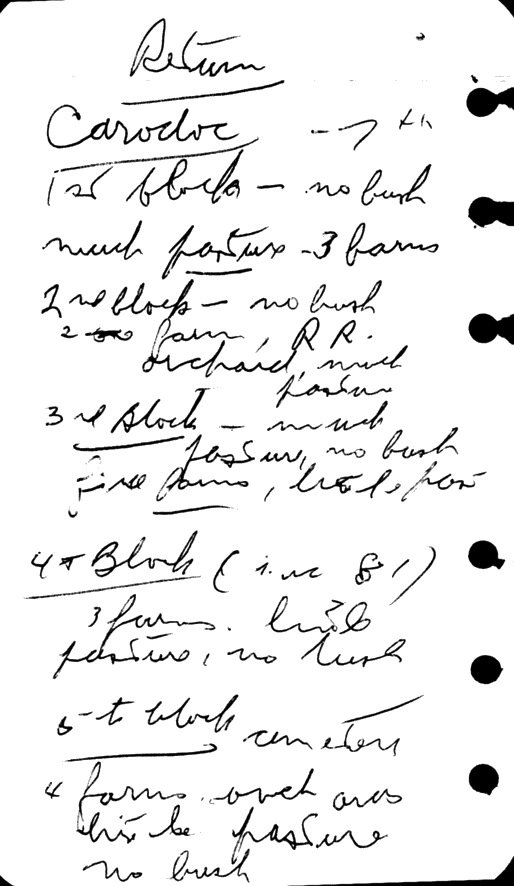 Return
Caradoc →
1st block - no bush
much pasture - 3 farms
2nd block - no bush
2 farm, R R.
orchard, much
pasture
3rd Block - much
pasture, no bush
five farms, little past
4th Block (inc 81)
3 farms. little
pasture, no bush
5th block cemetery
4 farms. orch
little pasture
no bush